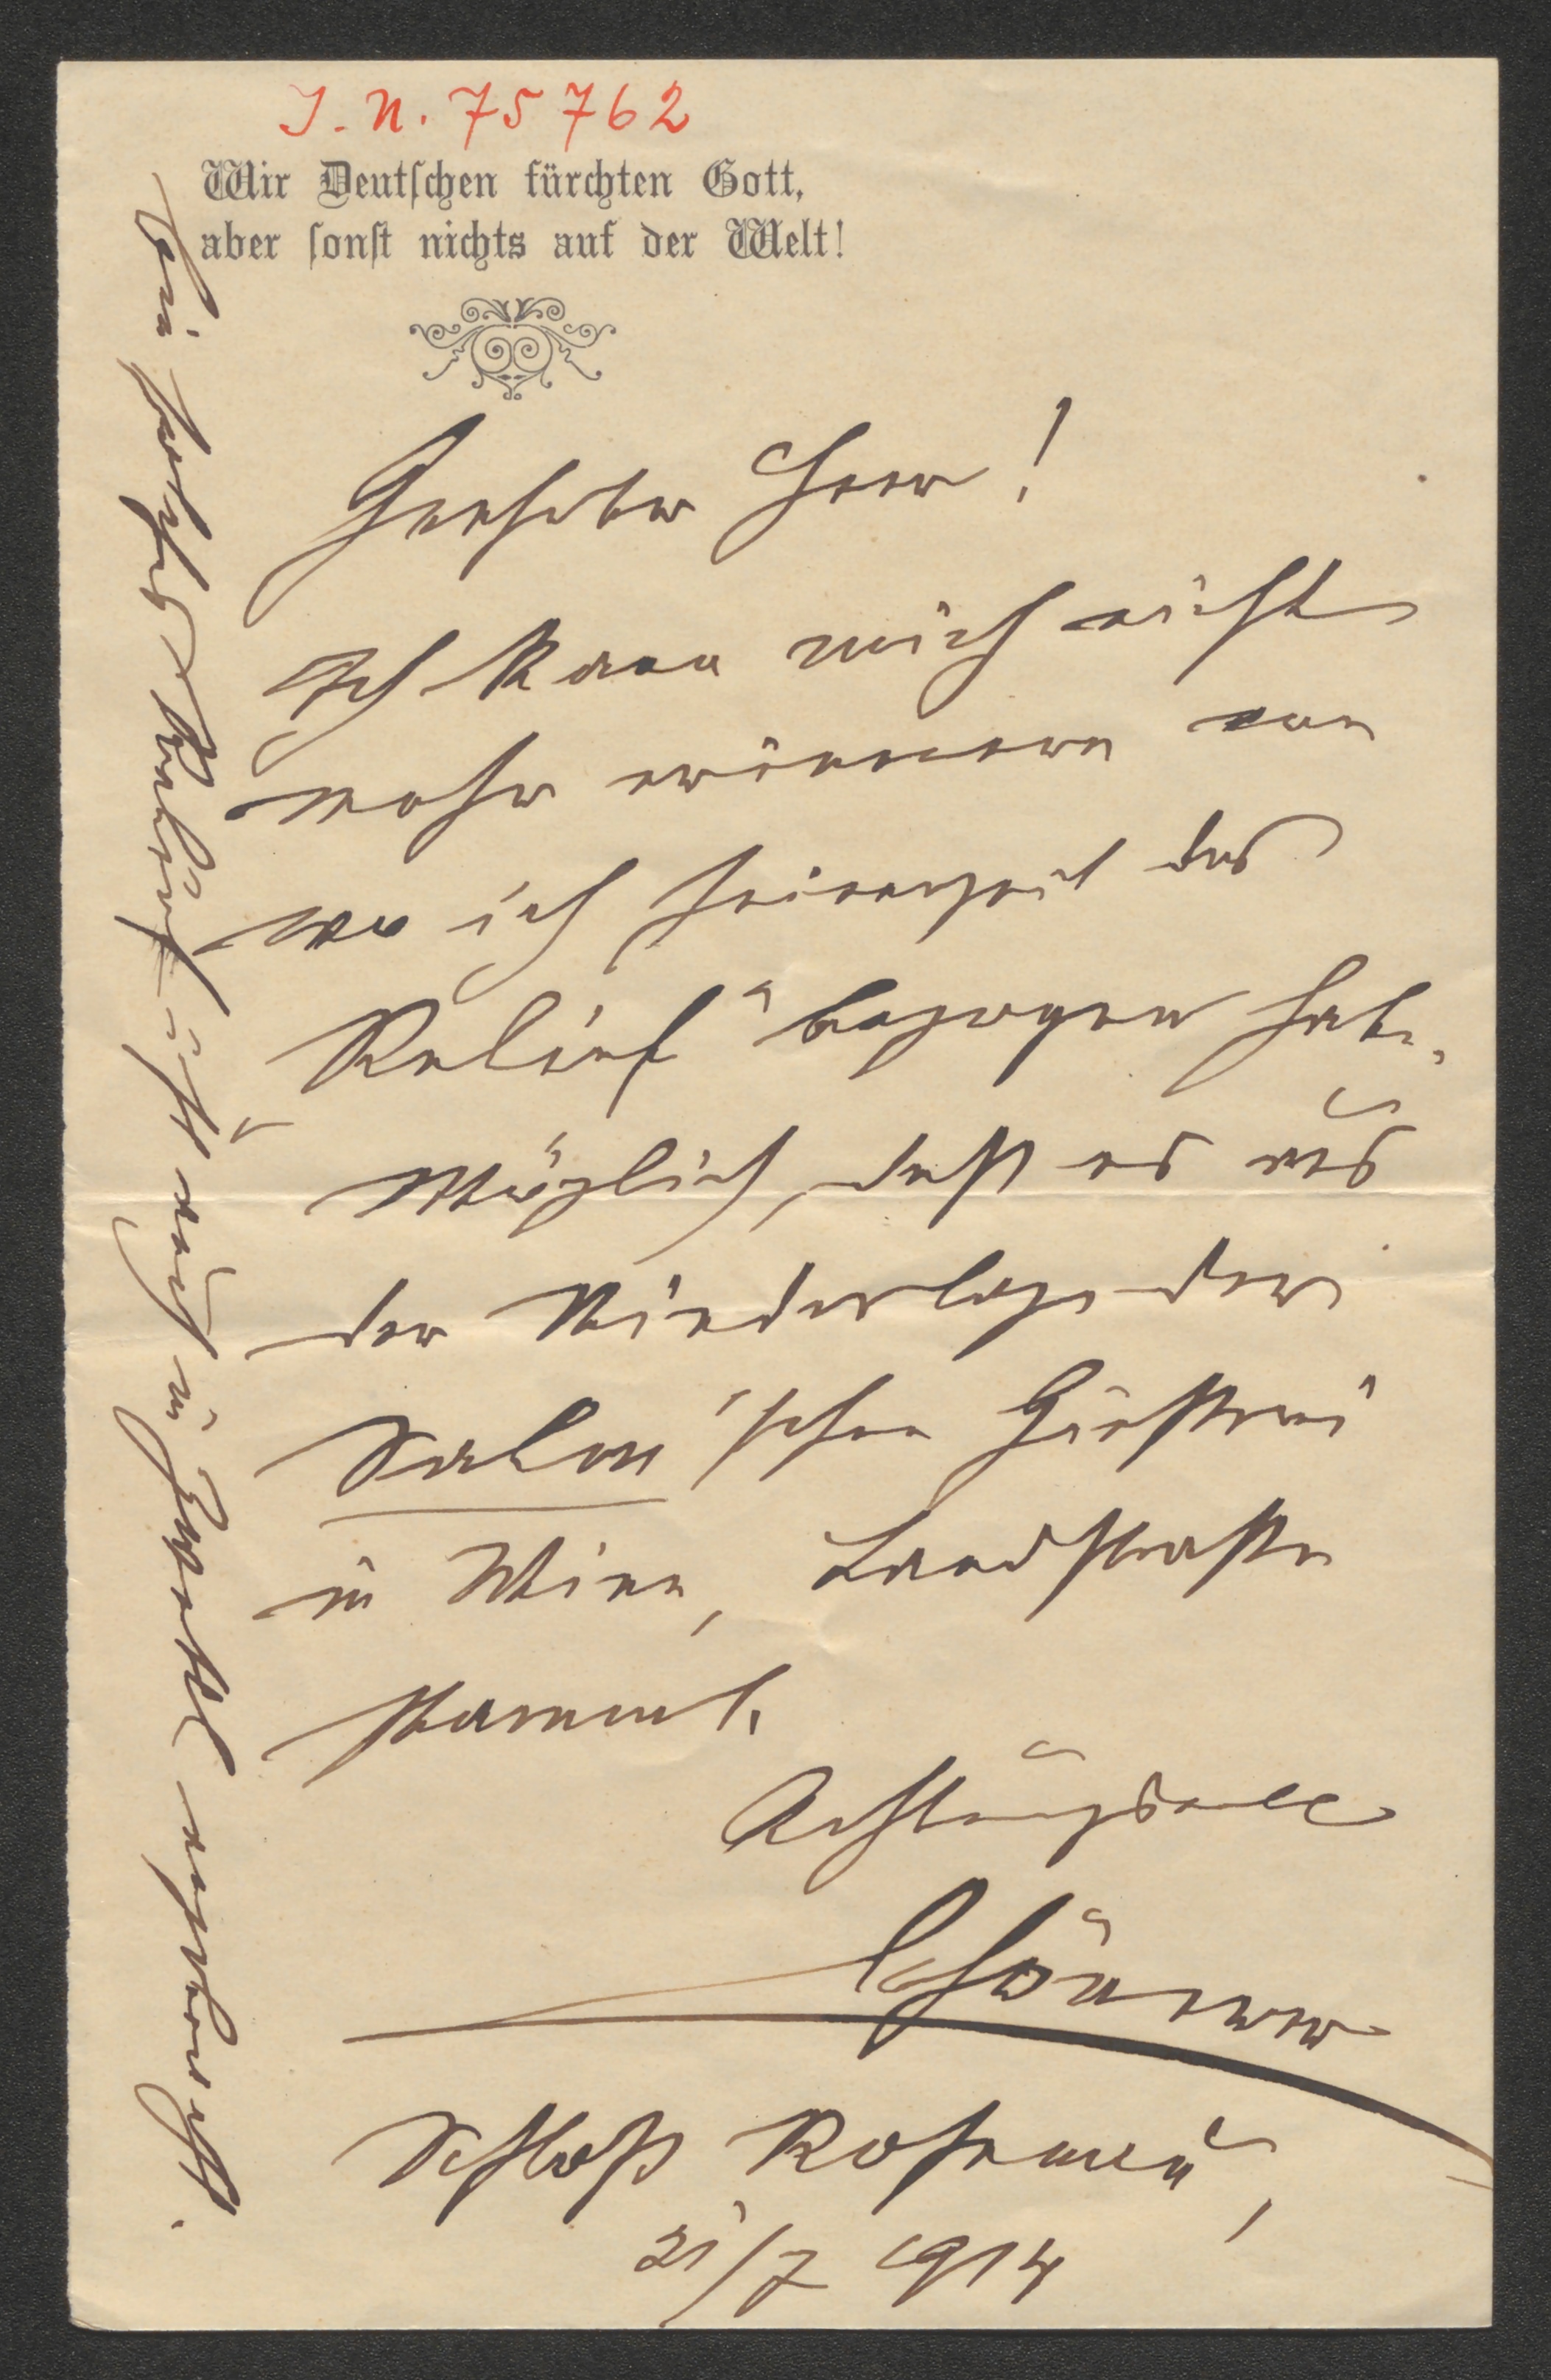 J. N. 75762
Wir Deutschen fürchten Gott,
aber sonst nichts auf der Welt!
Geehrter Herr!
Ich kann mich nicht
mehr erinnern von
wo ich seinerzeit das
Relief bezogen habe.
Möglich, daß es aus
der Niederlage der
Salm'schen Gießerei
in Wien, Landstraße
stammt.
Achtungsvoll
Schönerer
Schloß Rosenau,
21/7 1914
Ein solches Relief ist auch in Zwettl